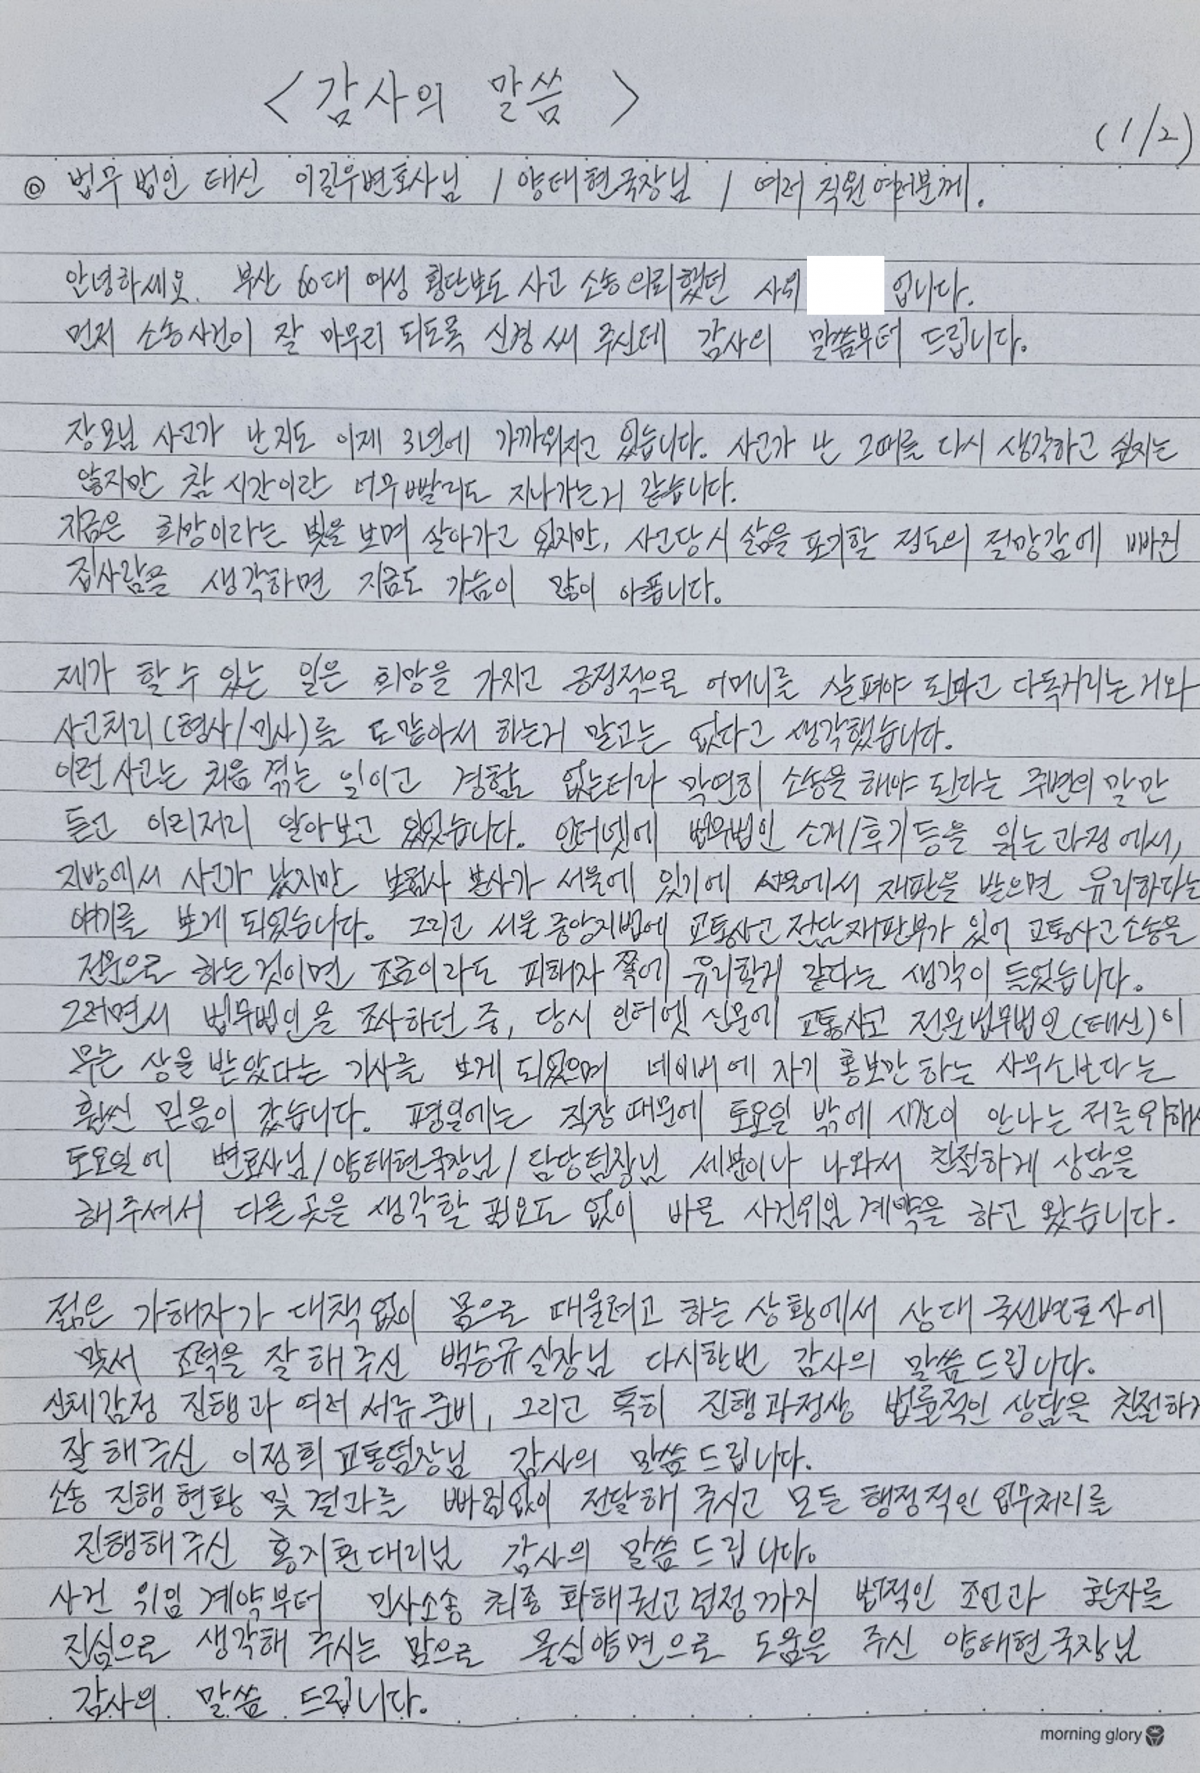 <감사의 말씀>
(1/2)
◎ 법무법인 태신 이길우변호사님 / 양태현국장님 / 여러 직원여러분께.
안녕하세요. 부산 60대 여성 횡단보도 사고 소송의뢰했던 사위 입니다.
먼저 소송사건이 잘 마무리 되도록 신경써 주신데 감사의 말씀부터 드립니다.
장모님 사고가 난지도 이제 3년에 가까워지고 있습니다. 사고가 난 그때를 다시 생각하고 싶지는
않지만 참 시간이란 너무빨리도 지나가는거 같습니다.
지금은 희망이라는 빛을 보며 살아가고 있지만, 사고당시 삶을 포기할 정도의 절망감에 빠진
집사람을 생각하면 지금도 가슴이 많이 아픕니다.
제가 할수 있는 일은 희망을 가지고 긍정적으로 어머니를 살펴야 된다고 다독거리는거와
사고처리(형사/민사)를 도맡아서 하는거 말고는 없다고 생각했습니다.
이런 사고는 처음 겪는 일이고 경험도 없는터라 막연히 소송을 해야 된다는 주변의 말만
듣고 이리저리 알아보고 있었습니다. 인터넷에 법무법인 소개/후기등을 읽는과정에서,
지방에서 사고가 났지만 보험사 본사가 서울에 있기에 서울에서 재판을 받으면 유리하다는
얘기를 보게 되었습니다. 그리고 서울중앙지법에 교통사고 전담재판부가 있어 교통사고소송을
전문으로 하는것이면 조금이라도 피해자 쪽에 유리할게 같다는 생각이 들었습니다.
그러면서 법무법인을 조사하던 중, 당시 인터넷 신문에 교통사고 전문법무법인(태신)이
무슨 상을 받았다는 기사를 보게 되었으며 네이버에 자기 홍보만하는 사무소보다는
훨씬 믿음이 갔습니다. 평일에는 직장때문에 토요일 밖에 시간이 안나는 저를위해서
토요일에 변호사님/양태현국장님/담당팀장님 세분이나 나와서 친절하게 상담을
해주셔서 다른곳을 생각할 필요도 없이 바로 사건위임 계약을 하고 왔습니다.
젊은 가해자가 대책없이 몸으로 때울려고 하는 상황에서 상대 국선변호사에
맞서 조력을 잘해주신 백승규실장님 다시한번 감사의 말씀드립니다.
신체감정 진행과 여러 서류준비, 그리고 특히 진행과정상 법률적인 상담을 친절하게
잘해주신 이정희교통팀장님 감사의 말씀드립니다.
소송 진행현황 및 결과를 빠짐없이 전달해 주시고 모든 행정적인 업무처리를
진행해주신 홍지환대리님 감사의 말씀드립니다.
사건 위임 계약부터 민사소송 최종 화해권고결정까지 법적인 조언과 환자를
진심으로 생각해 주시는 맘으로 물심양면으로 도움을 주신 양태현국장님
감사의 말씀 드립니다.
morning glory